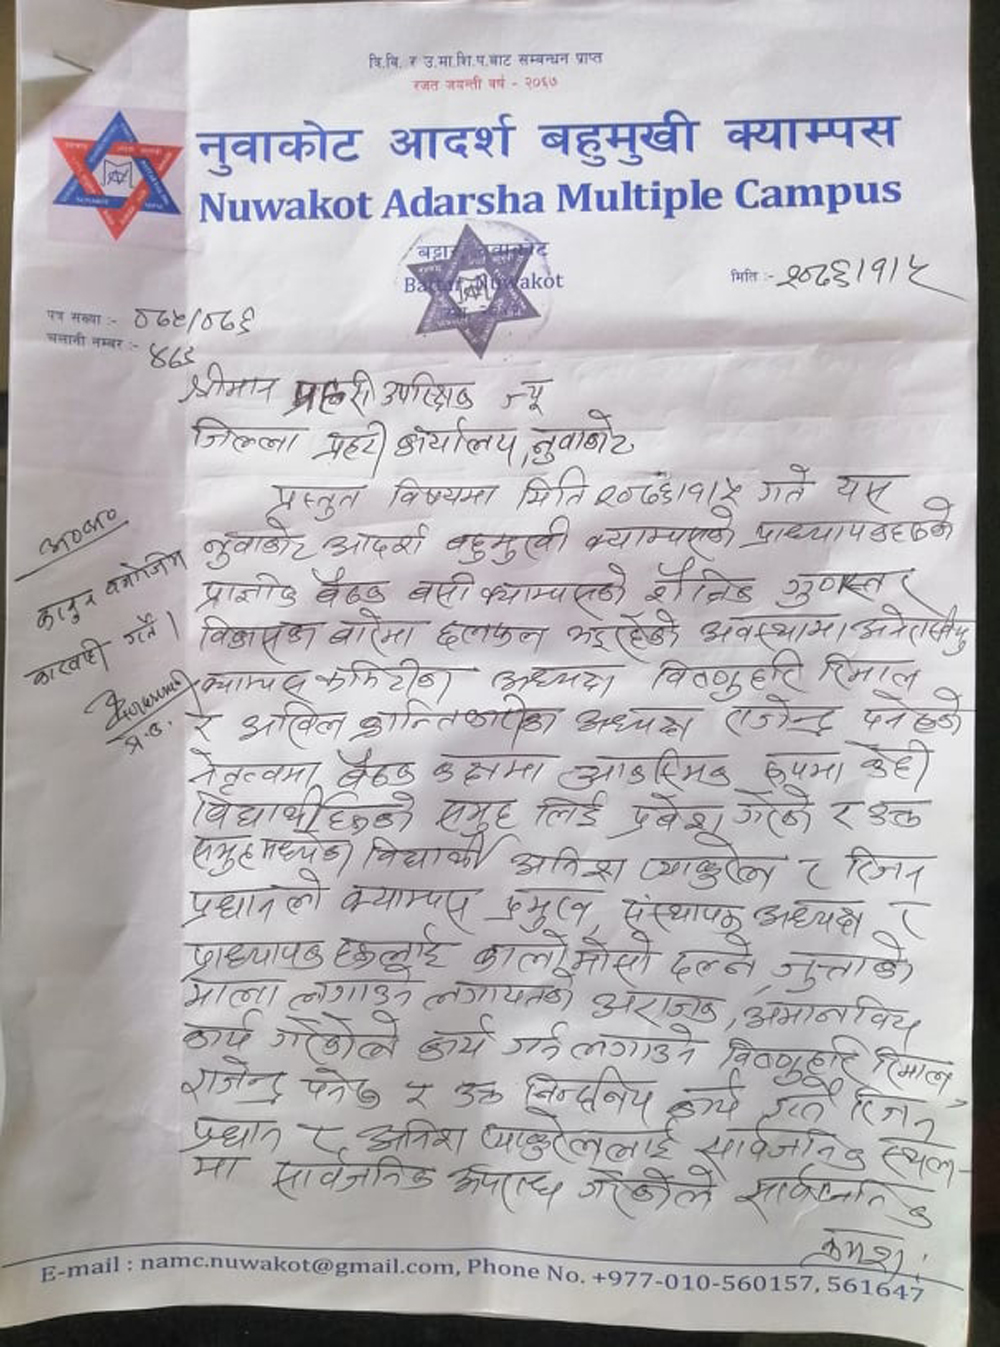 त्रि.बि. र उ.मा.शि.प.बाट सम्बन्धन प्राप्त
रजत जयन्ती वर्ष - २०६७
नुवाकोट आदर्श बहुमुखी क्याम्पस
Nuwakot Adarsha Multiple Campus
बट्टार नुवाकोट
Battar Nuwakot
मिति :- २०७६।१।५
पत्र संख्या :- ०७५/०७६
चलानी नम्बर :- ४७६
श्रीमान प्रहरी उपरिक्षक ज्यू
जिल्ला प्रहरी कार्यालय, नुवाकोट
प्रस्तुत विषयमा मिति २०७६।१।५ गते यस
नुवाकोट आदर्श बहुमुखी क्याम्पसको प्राध्यापकहरुको
प्राज्ञीक बैठक बसी क्याम्पसको शैक्षिक गुणस्तर
विकासका बारेमा छलफल भइरहेको अवस्थामा, अनेरास्ववियु
क्याम्पस कमिटीका अध्यक्ष विष्णुहरि रिमाल
र अखिल क्रान्तिकारीका अध्यक्ष राजेन्द्र पनेरुको
नेतृत्वमा बैठक कक्षमा आकस्मिक रुपमा केही
विद्यार्थीहरुको समुह लिई प्रवेश गरेको र उक्त
समुह मध्येका विद्यार्थी अनिश प्याकुरेल र रिजन
प्रधानले क्याम्पस प्रमुख, संस्थापक अध्यक्ष र
प्राध्यापक हरुलाई कालोमोसो दल्ने, जुत्ताको
माला लगाउने लगायतको अराजक, अमानविय
कार्य गरेकोले कार्य गर्न लगाउने विष्णुहरि रिमाल,
राजेन्द्र पनेरु र उक्त निन्दनिय कार्य गर्ने रिजन
प्रधान र अनिश प्याकुरेललाई सार्वजनिक स्थल-
मा सार्वजनिक अपराध गरेकोले सार्वजनिक
क्रमश:
कानुन बमोजिम
कारवाही गर्ने।
प्र.उ.
E-mail : namc.nuwakot@gmail.com, Phone No. +977-010-560157, 561647